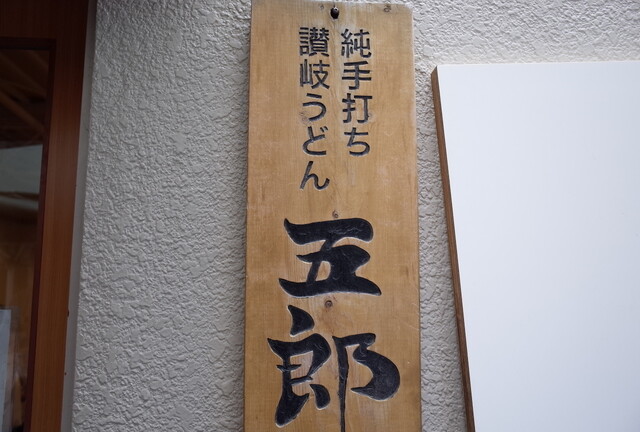 純手打ち
讃岐うどん
五郎